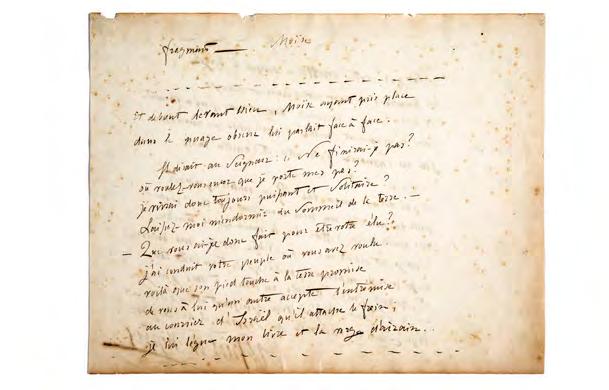 fragment — Moïse
Et debout devant Dieu, Moïse ayant pris place
dans le nuage obscur lui parlait face à face.
Il disait au Seigneur : « Ne finirai-je pas ?
où voulez-vous encor que je porte mes pas ?
je vivrai donc toujours puissant et solitaire ?
Laissez-moi m'endormir du Sommeil de la terre. —
— Que vous ai-je donc fait pour être votre élu ?
j'ai conduit votre peuple où vous avez voulu.
voilà que son pied touche à la terre promise
de vous à lui qu'un autre accepte l'entremise
au coursier d'Israël qu'il attache le frein ;
je lui lègue mon livre et la verge d'airain.